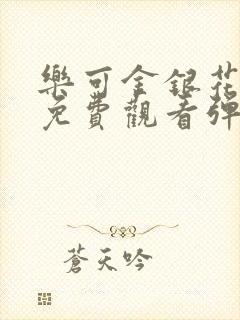 樂可金銀花
免費觀看彈
蒼天吟